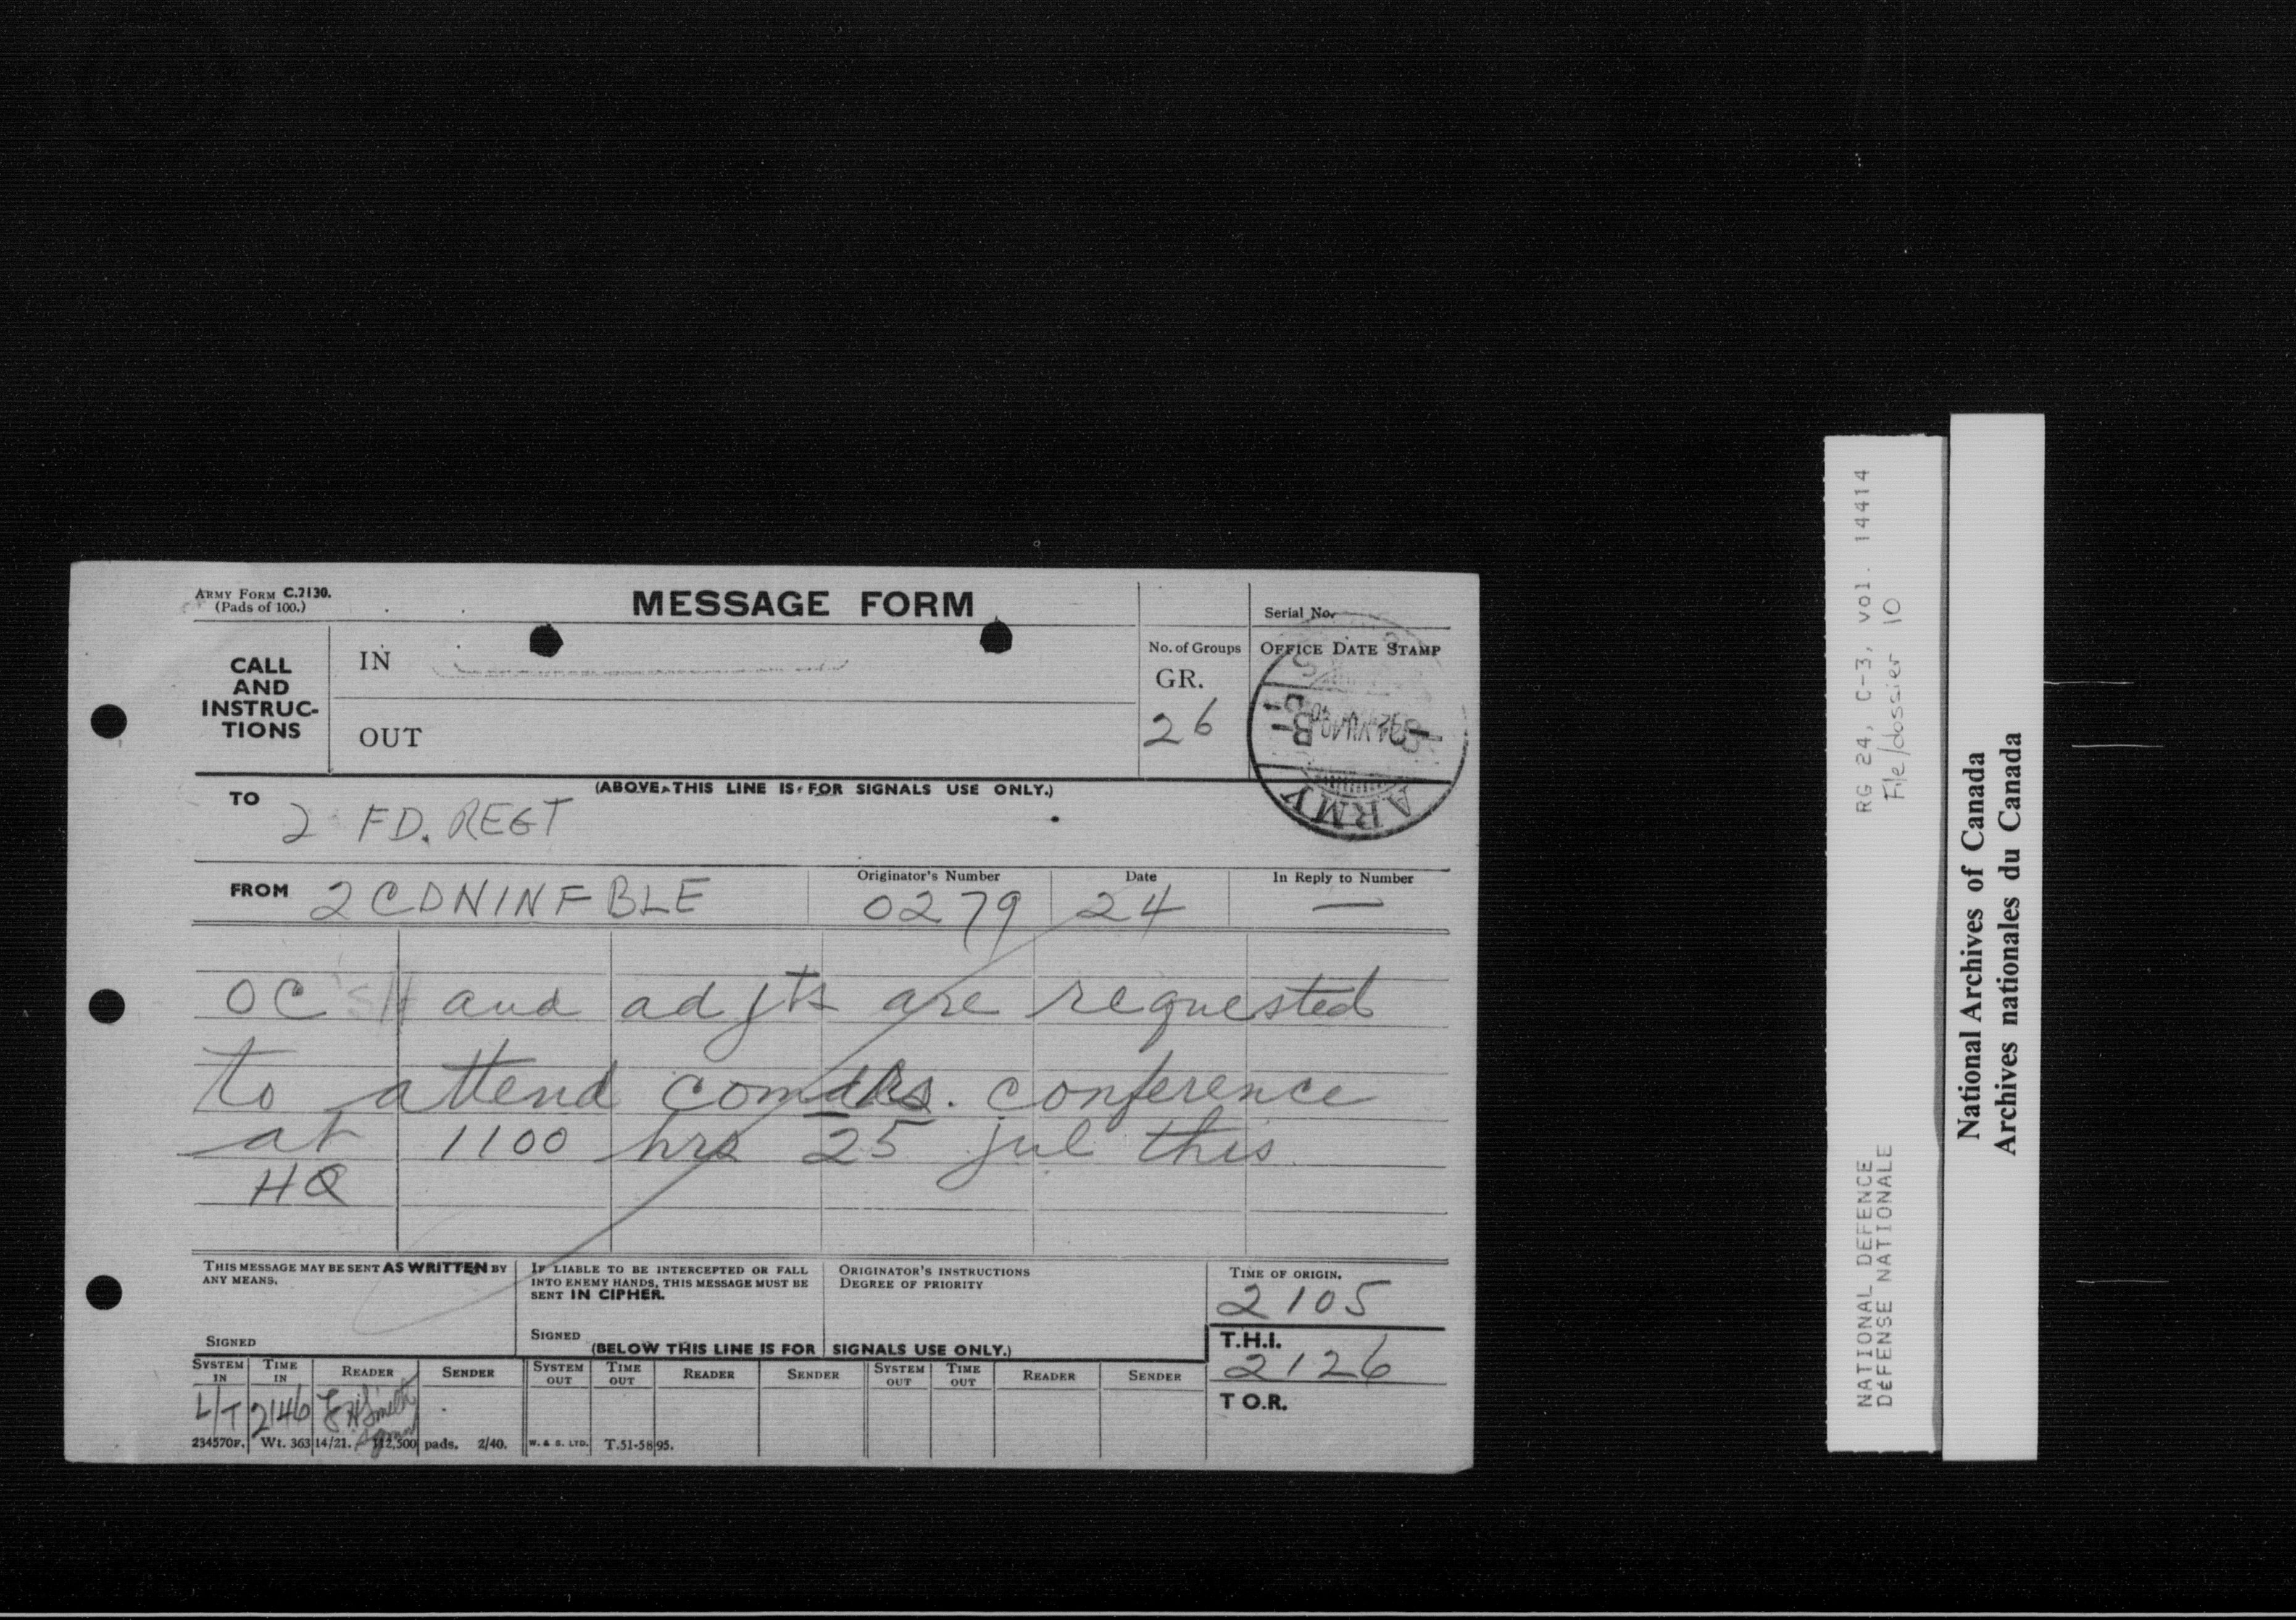 ARMY FORM C.2130.
(Pads of 100.)
MESSAGE FORM
Serial No.
CALL
AND
INSTRUC-
TIONS
IN
OUT
No. of Groups
GR.
26
OFFICE DATE STAMP
ARMY
(ABOVE THIS LINE IS FOR SIGNALS USE ONLY.)
TO
2 FD. REGT
FROM 2 CDN INF BLE
Originator's Number
0279
Date
24
In Reply to Number
—
OC's and adjts are requested
to attend comdrs. conference
at 1100 hrs 25 jul this
HQ
THIS MESSAGE MAY BE SENT AS WRITTEN BY
ANY MEANS.
SIGNED
IF LIABLE TO BE INTERCEPTED OR FALL
INTO ENEMY HANDS, THIS MESSAGE MUST BE
SENT IN CIPHER.
SIGNED
ORIGINATOR'S INSTRUCTIONS
DEGREE OF PRIORITY
TIME OF ORIGIN.
2105
T.H.I.
2126
T O.R.
(BELOW THIS LINE IS FOR SIGNALS USE ONLY.)
SYSTEM IN TIME IN READER SENDER SYSTEM OUT TIME OUT READER SENDER SYSTEM OUT TIME OUT READER SENDER
L/T 2146 Smith
234570F. Wt. 363 14/21. 112,500 pads. 2/40. W. & S. LTD. T.51-5895.
RG 24, C-3, vol. 14414
File/dossier 10
NATIONAL DEFENCE
DÉFENSE NATIONALE
National Archives of Canada
Archives nationales du Canada